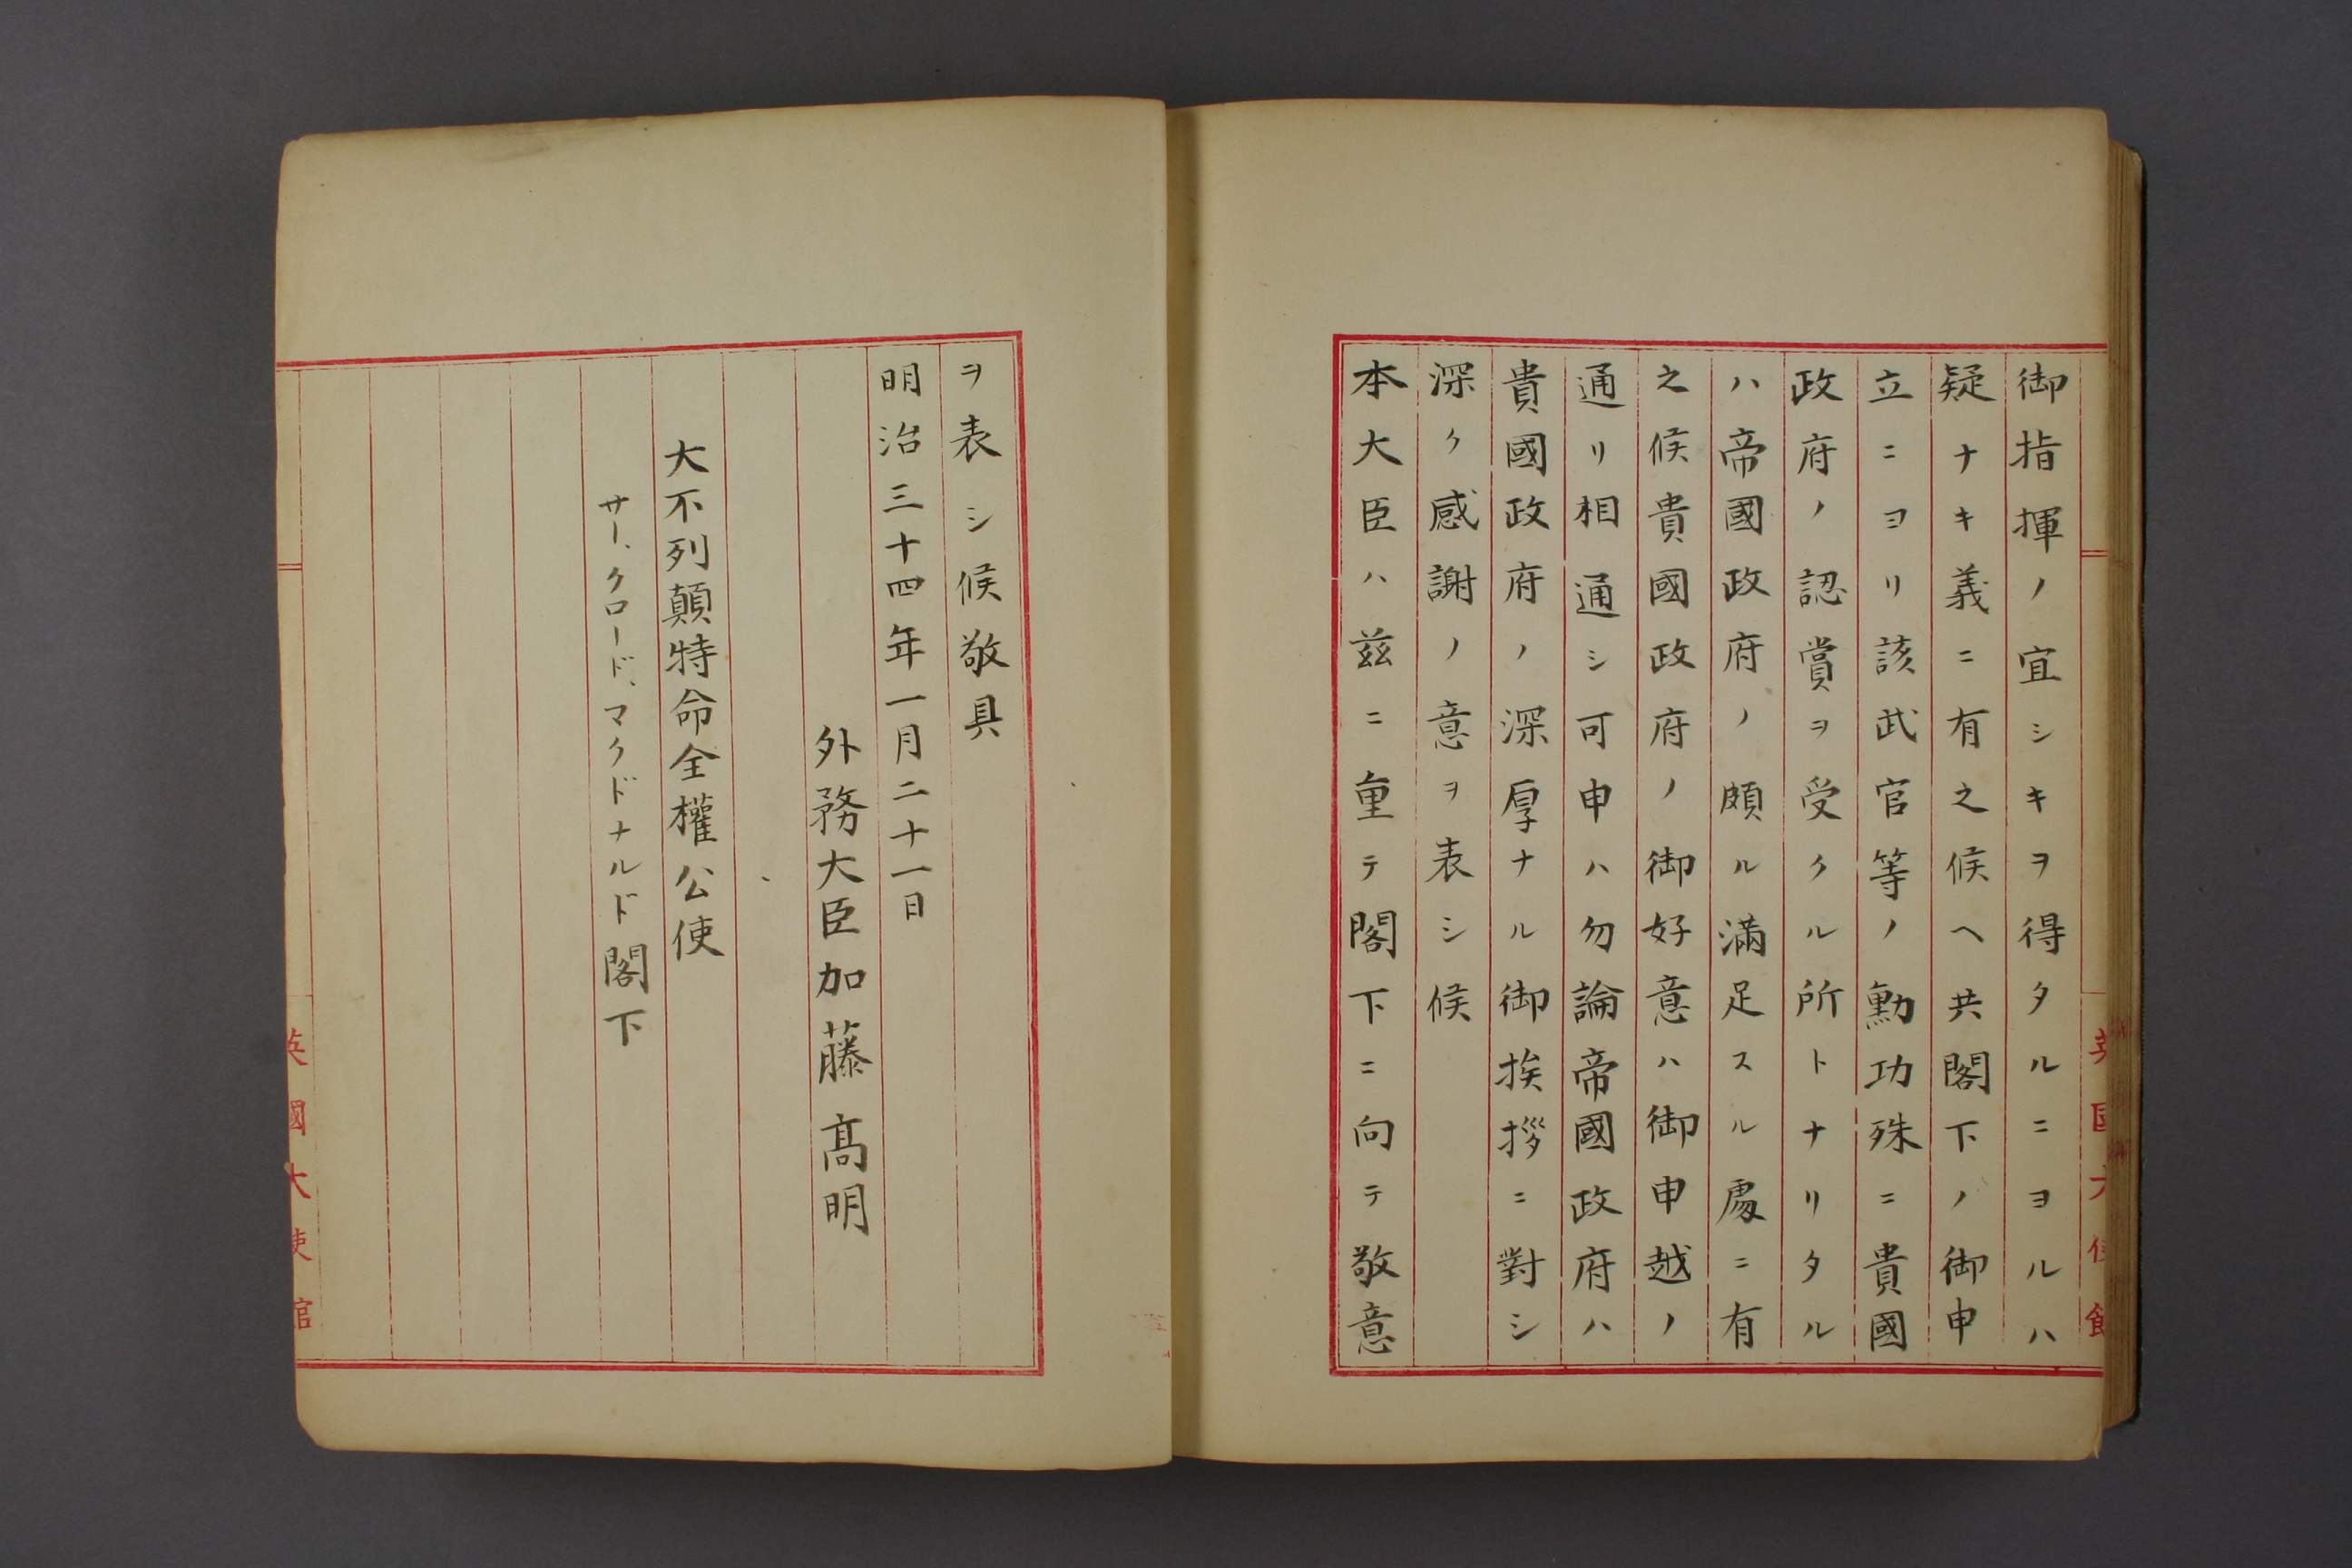 御指揮ノ宜シキヲ得タルニヨルハ
疑ナキ義ニ有之候ヘ共閣下ノ御申
立ニヨリ該武官等ノ勳功殊ニ貴國
政府ノ認賞ヲ受クル所トナリタル
ハ帝國政府ノ頗ル滿足スル處ニ有
之候貴國政府ノ御好意ハ御申越ノ
通リ相通シ可申ハ勿論帝國政府ハ
貴國政府ノ深厚ナル御挨拶ニ對シ
深ク感謝ノ意ヲ表シ候
本大臣ハ茲ニ重テ閣下ニ向テ敬意
ヲ表シ候敬具
明治三十四年一月二十一日
外務大臣加藤高明
大不列顛特命全權公使
サー、クロード、マクドナルド閣下
英國大使館
英國大使館